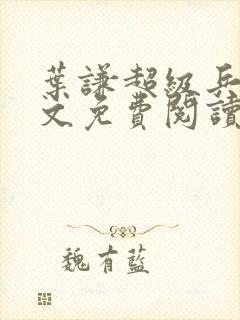 葉謙超級兵
文免費閱讀
魏有藍